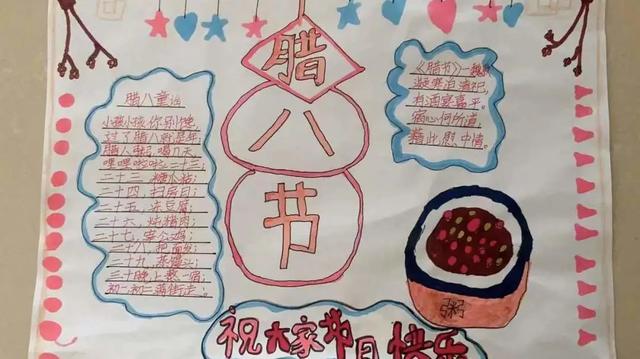 腊八节
腊八童谣
小孩小孩你别馋,
过了腊八就是年
腊八粥,喝几天,
哩哩啦啦二十三;
二十三,糖瓜粘;
二十四,扫房日;
二十五,冻豆腐;
二十六,炖猪肉;
二十七,宰公鸡;
二十八,把面发;
二十九,蒸馒头;
三十晚上熬一宿;
初一初二满街走。
《腊节》—魏收
凝寒迫清祀,
有酒宴嘉平。
宿心何所道,
藉此慰中情。
粥
祝大家节日快乐